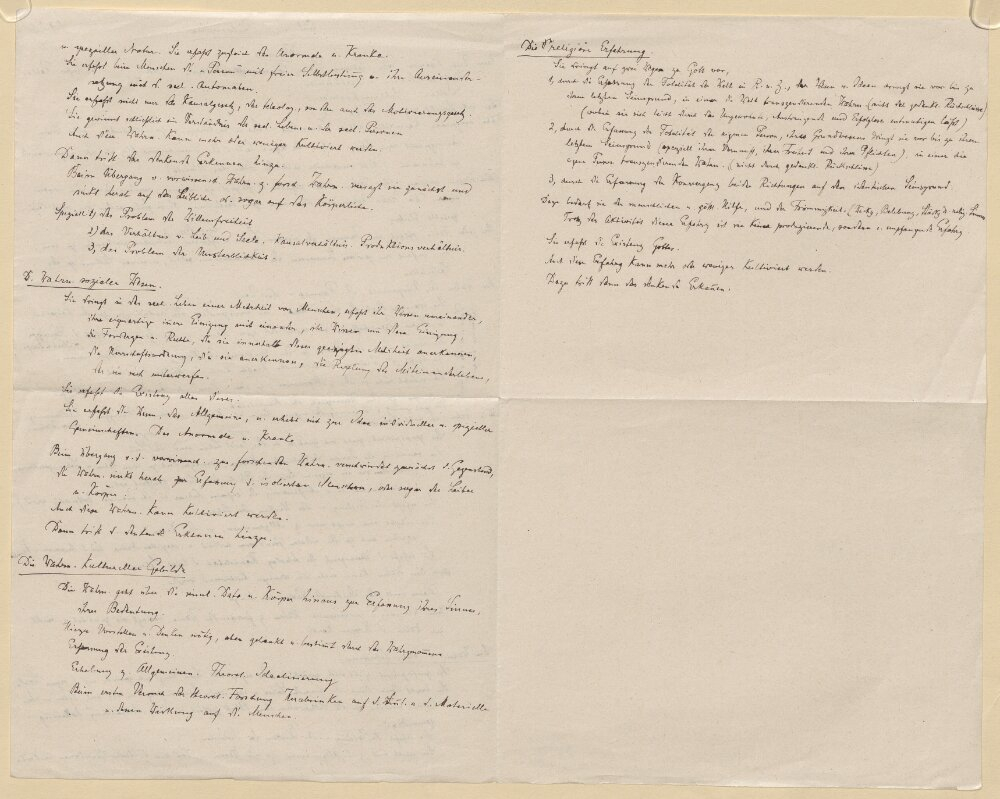 u. spezieller Natur. Sie erfaßt zugleich das Anormale u. Kranke.
Sie erfaßt beim Menschen die Person mit freier Selbstleitung u. ihre Auseinander-
setzung mit d. seel. Automaten.
Sie erfaßt nicht nur die Kausalgesetze, des seel., sondern auch das Motivierungsgesetz.
Sie gewinnt schließlich ein Verständnis des seel. Lebens u. der seel. Personen
Auch diese Wahrn. kann mehr oder weniger kultiviert werden.
Dann tritt das denkende Erkennen hinzu.
Beim Übergang v. vorwissensch. Wahrn. z. forsch. Wahrn. versagt sie zunächst und
sinkt herab auf das Leibliche od. sogar auf das Körperliche.
Speziell 1) das Problem der Willensfreiheit
2) das Verhältnis v. Leib und Seele. Kausalverhältnis. Produktionsverhältnis.
3) das Problem der Unsterblichkeit.
D. Wahrn. sozialer Wesen.
Sie dringt in das seel. Leben einer Mehrheit von Menschen, erfaßt ihr Wissen umeinander,
ihre eigenartige innere Einigung mit einander, ihr Wissen um diese Einigung,
die Forderungen u. Rechte, die sie innerhalb dieser geeinigten Mehrheit anerkennen,
die Herrschaftsordnung, die sie anerkennen, die Regelung des Miteinanderlebens,
der sie sich unterwerfen.
Sie erfaßt die Existenz alles dieses.
Sie erfaßt die Wesen, das Allgemeine, u. erhebt sich zur Idee individueller u. spezieller
Gemeinschaften. Das Anormale u. Kranke
Beim Übergang v. d. vorwissensch. zur forschenden Wahrn. verschwindet zunächst d. Gegenstand,
die Wahrn. sinkt herab zur Erfassung d. isolierten Menschen, oder sogar der Leiber
u. Körper.
Auch diese Wahrn. kann kultiviert werden.
Dann tritt d. denkende Erkennen hinzu.
Die Wahrn. kultureller Gebilde
Die Wahrn. geht über die sinnl. Data u. Körper hinaus zur Erfassung ihres Sinnes,
ihrer Bedeutung.
Hierzu Vorstellen u. Denken nötig, aber gelenkt u. bestimmt durch das Wahrgenommene
Erfassung der Existenz.
Erhebung z. Allgemeinen. Theoret. Idealisierung
Beim ersten Versuch der theoret. Forschung Herabsinken auf d. Sinnl. u. d. Materielle
u. deren Wirkung auf d. Menschen
Die religiöse Erfahrung.
Sie dringt auf zwei Wegen zu Gott vor,
1, durch die Erfassung der Totalität der Welt in R. u. Z., ihres Wesens u. dringt sie vor bis zu
dem letzten Seinsgrund, in einer die Welt transzendierenden Wahrn. (nicht der gedankl. Rückschlüsse)
(wobei sie sich nicht durch das Ungeordnete und entmutigen läßt)
2, durch die Erfassung der Totalität der eigenen Person, ihres Grundwesens dringt sie vor bis zu ihrem
letzten Seinsgrund (speziell ihrer Vernunft, ihrer Freiheit und ihrer Pflichten) in einer die
eigene Person transzendierenden Wahrn. (nicht durch gedankl. Rückschlüsse)
3, durch die Erfassung der Konvergenz beider Richtungen auf den identischen Seinsgrund.
Dazu bedarf sie der menschlichen u. göttl. Hilfe, und der Frömmigkeit.
Trotz der Aktivität dieser Erfahrg. ist sie keine produzierende, sondern e. empfangende Erfahrg.
Sie erfaßt die Existenz Gottes.
Auch diese Erfahrg. kann mehr oder weniger kultiviert werden.
Dazu tritt dann das denkende Erkennen.